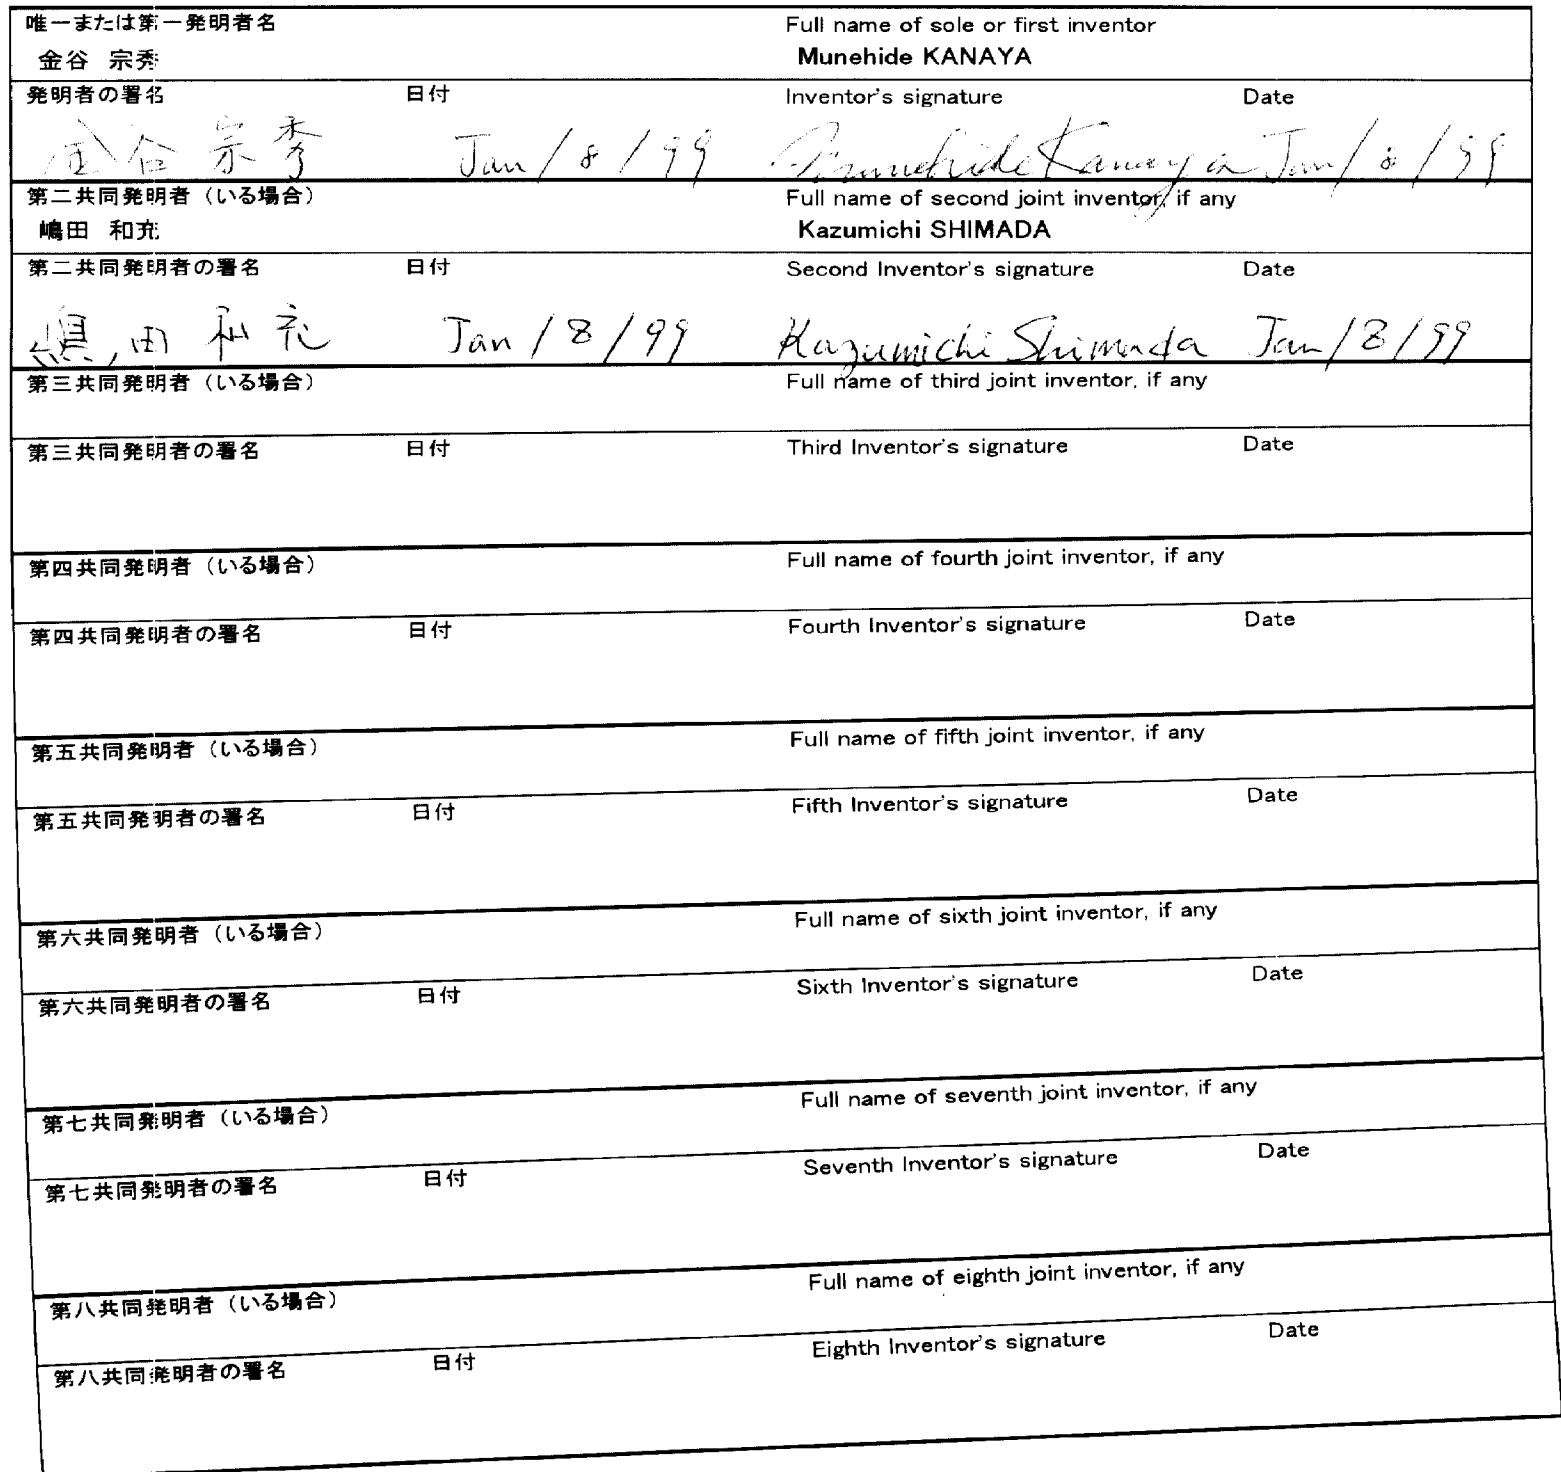 唯一または第一発明者名 Full name of sole or first inventor
金谷 宗秀 Munehide KANAYA
発明者の署名 日付 Inventor's signature Date
金谷 宗秀 Jan/8/99 Munehide Kanaya Jan/8/99
第二共同発明者（いる場合） Full name of second joint inventor, if any
嶋田 和充 Kazumichi SHIMADA
第二共同発明者の署名 日付 Second Inventor's signature Date
嶋田 和充 Jan/8/99 Kazumichi Shimada Jan/8/99
第三共同発明者（いる場合） Full name of third joint inventor, if any
第三共同発明者の署名 日付 Third Inventor's signature Date
第四共同発明者（いる場合） Full name of fourth joint inventor, if any
第四共同発明者の署名 日付 Fourth Inventor's signature Date
第五共同発明者（いる場合） Full name of fifth joint inventor, if any
第五共同発明者の署名 日付 Fifth Inventor's signature Date
第六共同発明者（いる場合） Full name of sixth joint inventor, if any
第六共同発明者の署名 日付 Sixth Inventor's signature Date
第七共同発明者（いる場合） Full name of seventh joint inventor, if any
第七共同発明者の署名 日付 Seventh Inventor's signature Date
第八共同発明者（いる場合） Full name of eighth joint inventor, if any
第八共同発明者の署名 日付 Eighth Inventor's signature Date